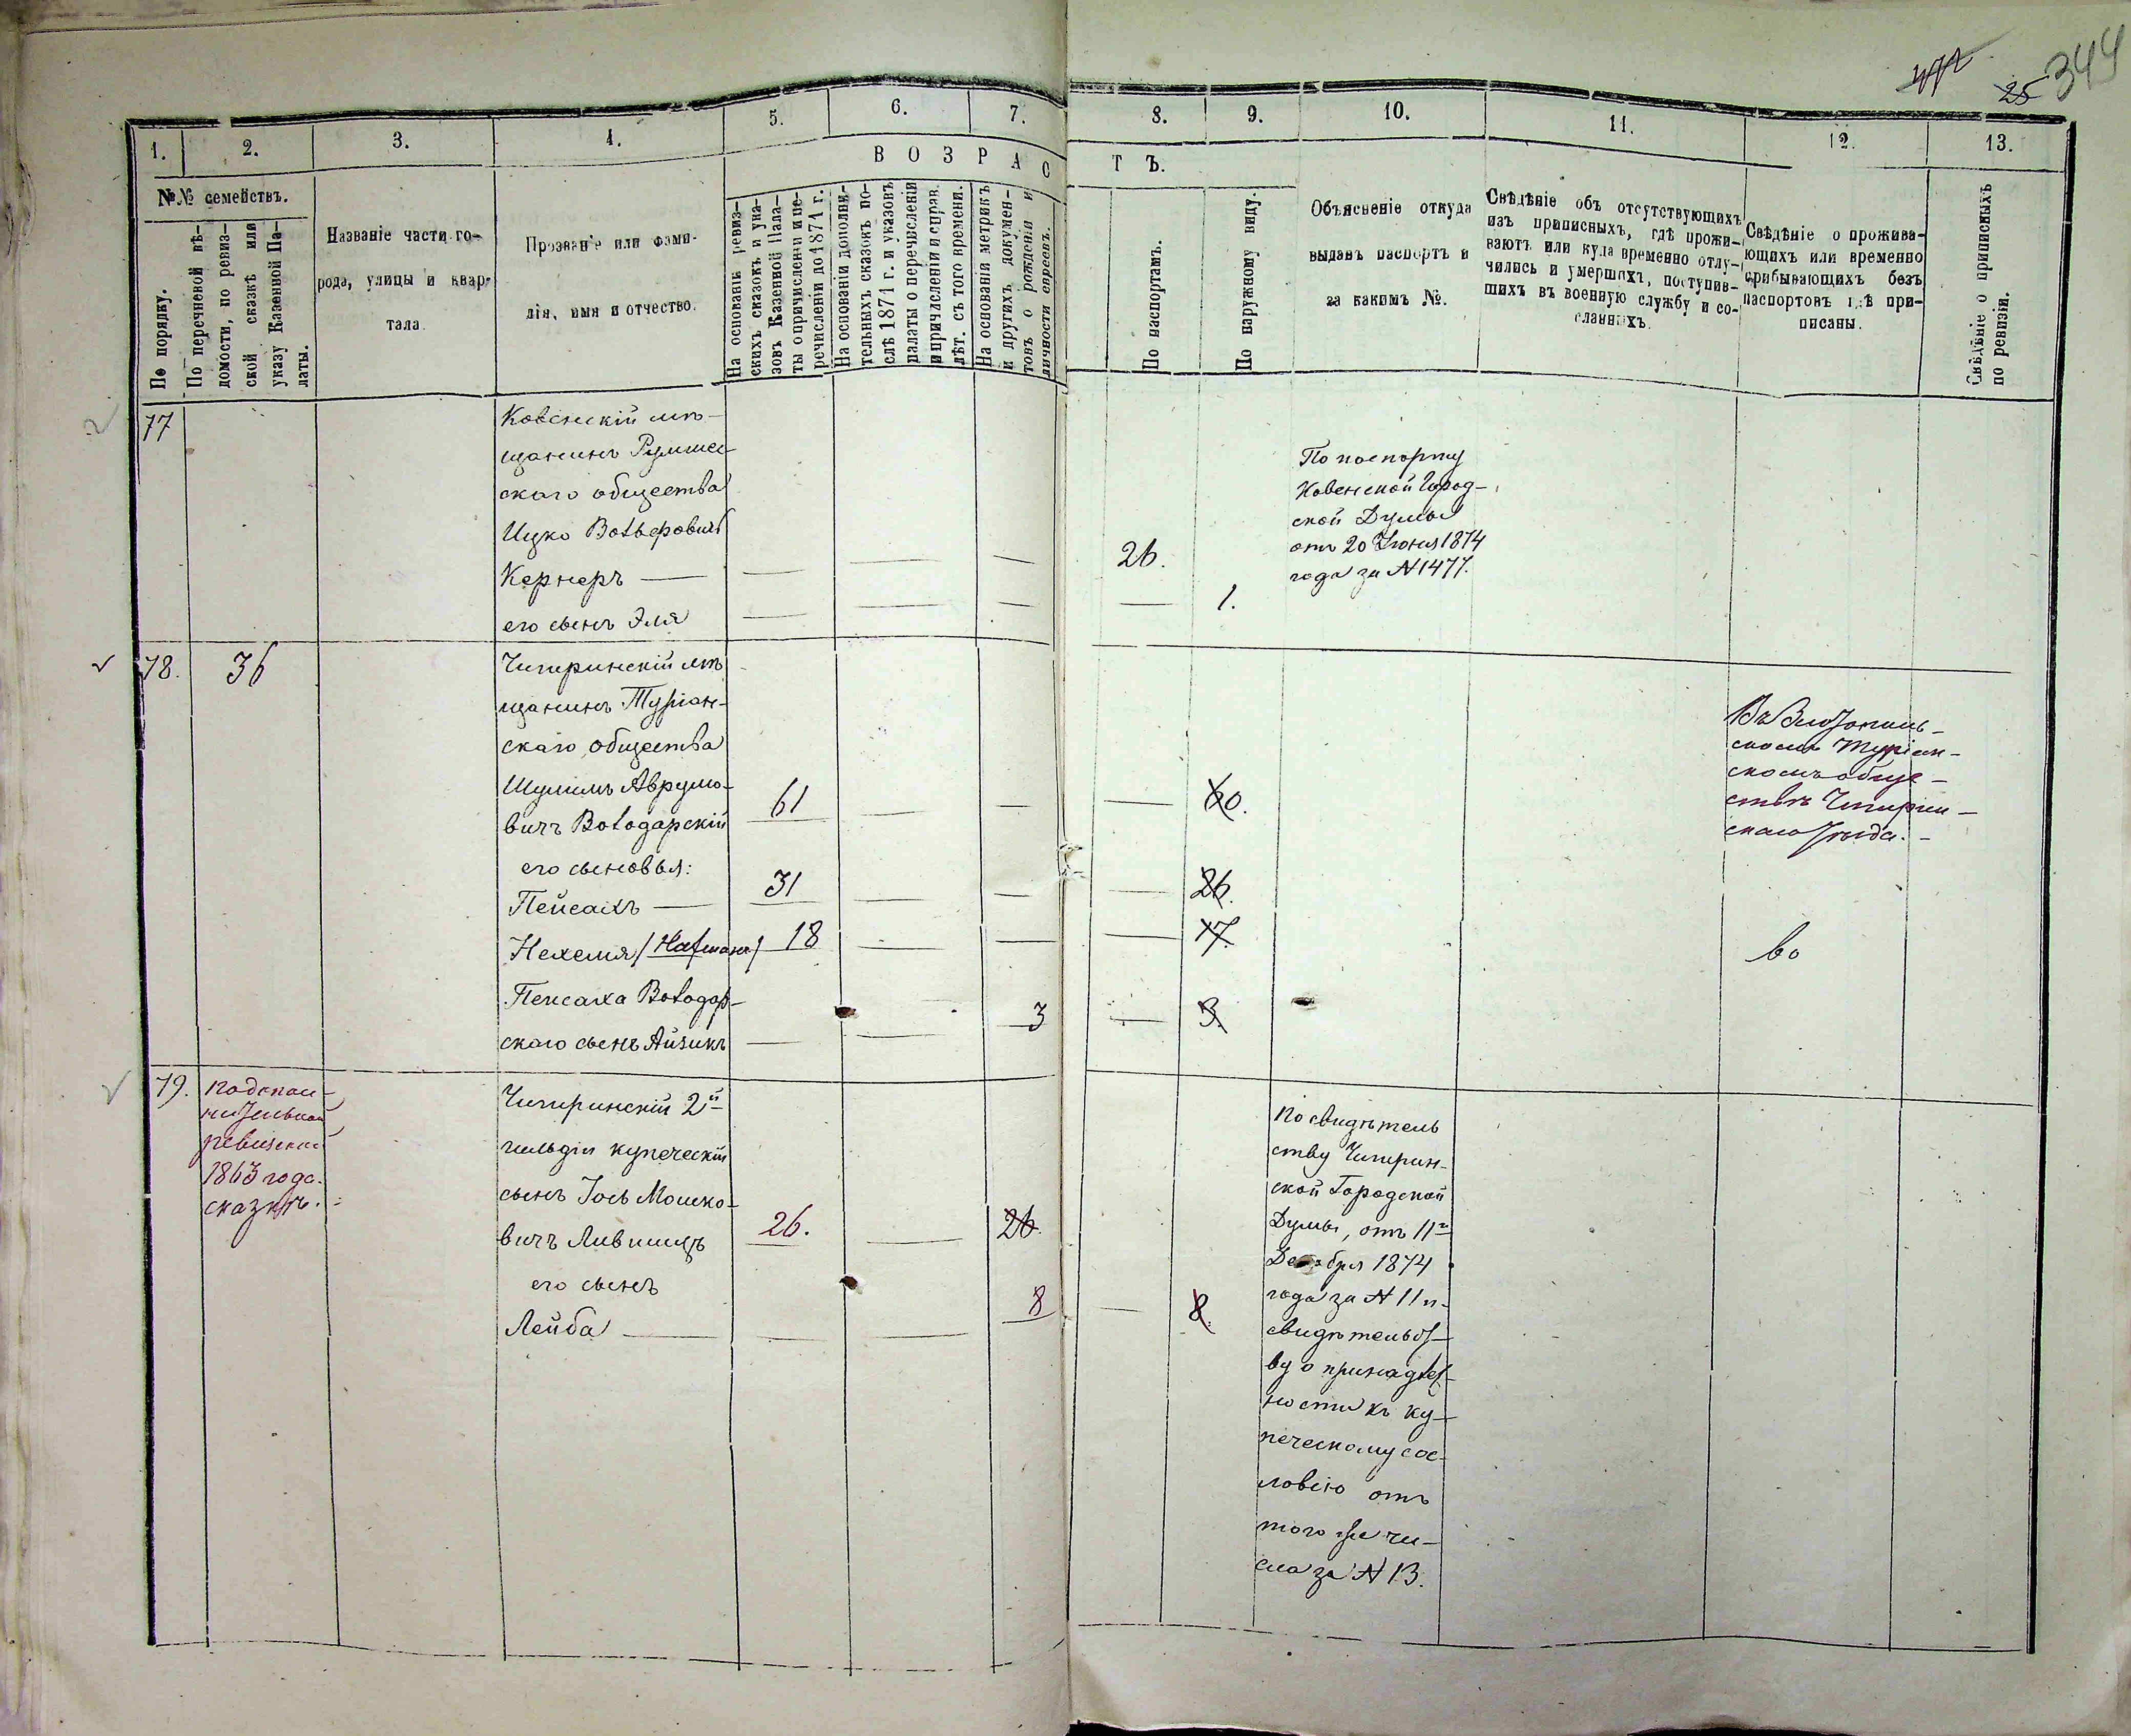 25 344
1. 2. 3. 4. 5. 6. 7. 8. 9. 10. 11. 12. 13.
В О З Р А С Т Ъ.
№№ семействъ.
По порядку.
По перечневой вѣ-
домости, по ревиз-
ской сказкѣ или
указу Казенной Па-
латы.
Названіе части го-
рода, улицы и квар-
тала.
Прозваніе или фами-
лія, имя и отчество.
На основаніи ревиз-
скихъ сказокъ и ука-
зовъ Казенной Пала-
ты о причисленіи и пе-
речисленіи до 1871 г.
На основаніи дополни-
тельныхъ сказокъ по-
слѣ 1871 г. и указовъ
палаты о перечисленіи
и причисленіи и справ.
лѣт. съ того времени.
На основаніи метрикъ
и другихъ докумен-
товъ о рожденіи и
личности евреевъ.
По паспортамъ.
По наружному виду.
Объясненіе откуда
выданъ паспортъ и
за какимъ №.
Свѣдѣніе объ отсутствующихъ
изъ приписныхъ, гдѣ прожи-
ваютъ или куда временно отлу-
чились и умершихъ, поступив-
шихъ въ военную службу и со-
сланныхъ.
Свѣдѣніе о прожива-
ющихъ или временно
прибывающихъ безъ
паспортовъ гдѣ при-
писаны.
Свѣдѣніе о приписныхъ
по ревизіи.
77
Ковенскій мѣ-
щанинъ Румше-
скаго общества
Ицко Вольфовичъ
Кернеръ — — — — 26.
его сынъ Эля — — — — 1.
По паспорту
Ковенской Город-
ской Думы
отъ 20 Іюня 1874
года за № 1477.
78. 36
Чигиринскій мѣ
щанинъ Туріан-
скаго общества
Шулимъ Аврумо-
вичъ Володарскій 61 — — — 60.
его сыновья:
Пейсахъ — 31 — — — 26.
Нехемія /Налманъ/ 18 — — — 17.
Пейсаха Володар-
скаго сынъ Айзикъ — — 3 — 3.
скомъ Туріан-
скомъ обще-
ствѣ Чигирин-
скаго уѣзда.
во
79.
ревизской
1863 года
сказкѣ.
Чигиринскій 2й
гильдіи купеческій
сынъ Іось Мошко-
вичъ Лившицъ 26. — 26.
его сынъ
Лейба — — — 8 — 8.
По свидѣтель
ству Чигирин-
ской Городской
Думы, отъ 11го
Декабря 1874
года за № 11 и
свидѣтельст-
ву о принадлеж-
ности къ ку-
печескому сос-
ловію отъ
того же чи-
сла за № 13.